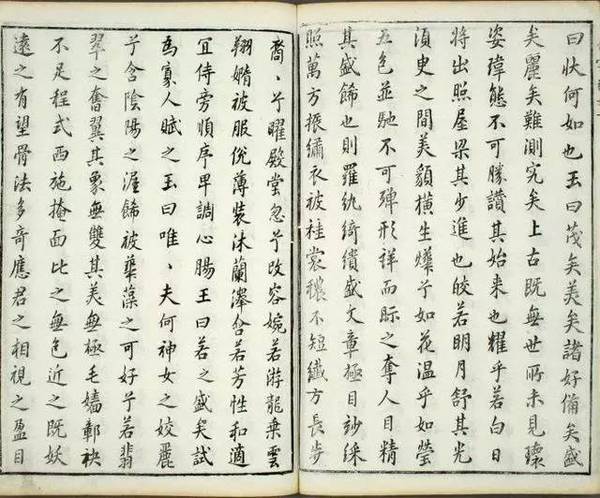 曰狀何如也王曰茂矣美矣諸好備矣盛
矣麗矣難測究矣上古既無世所未見瓌
姿瑋態不可勝讚其始来也耀乎若白日
將出照屋梁其少進也皎若明月舒其光
湏臾之間美貌橫生爗兮如花溫乎如瑩
五色並馳不可殫形詳而眎之奪人目精
其盛餙也則羅紈綺繢盛文章極目玅綵
照萬方振繡衣被袿裳穠不短纖方長步
裔〻兮曜殿堂忽兮改容婉若游龍乗雲
翔嫷被服侻薄裝沐蘭澤含若芳性和適
冝侍旁順序卑調心腸王曰若之盛矣試
爲寡人賦之玉曰唯〻夫何神女之姣麗
兮含陰陽之渥餙被華藻之可好兮若翡
翠之奮翼其象無雙其美無極毛嬙鄣袂
不足程式西施掩面比之無色近之既妖
遠之有望骨法多奇應君之相視之盈目